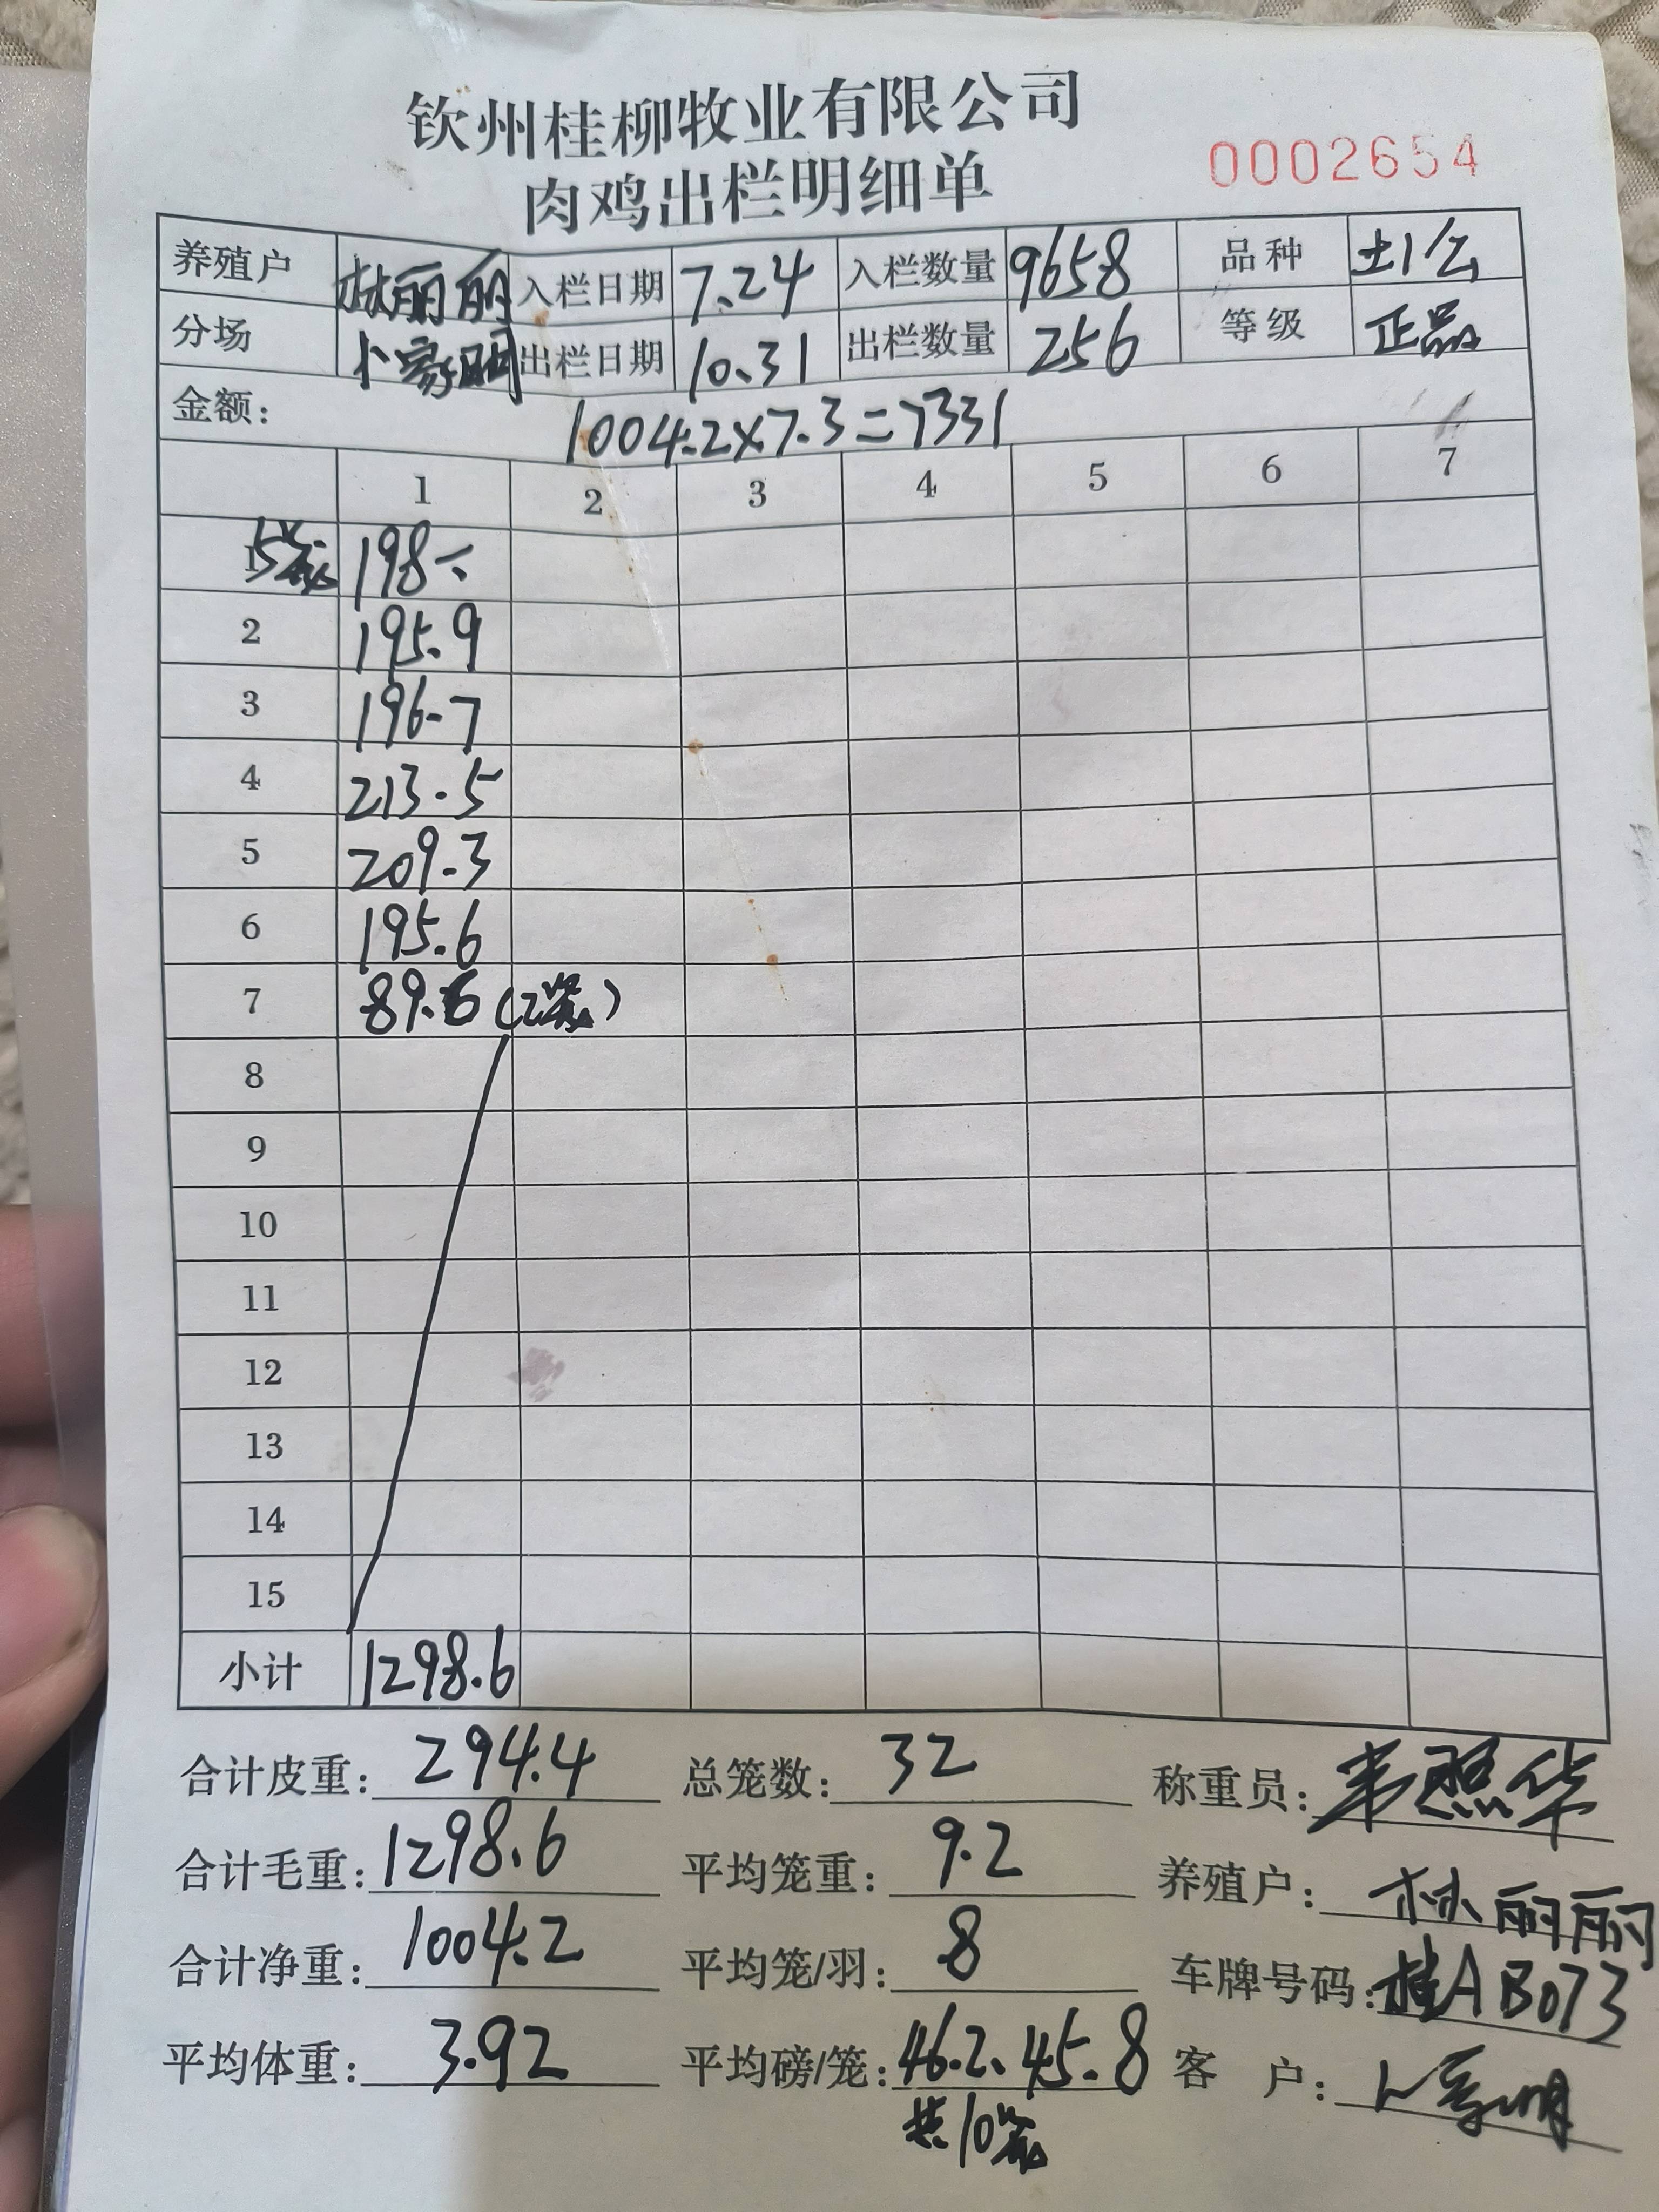 钦州桂柳牧业有限公司
肉鸡出栏明细单
0002654
养殖户 林丽丽 入栏日期 7.24 入栏数量 9658 品种 土1公
分场 出栏日期 10.31 出栏数量 256 等级 正品
金额： 1004.2×7.3=7331
1 2 3 4 5 6 7
1 5笼 198
2 195.9
3 196.7
4 213.5
5 209.3
6 195.6
7 89.6 (2笼)
8
9
10
11
12
13
14
15
小计 1298.6
合计皮重： 294.4 总笼数： 32 称重员： 韦照华
合计毛重： 1298.6 平均笼重： 9.2 养殖户： 林丽丽
合计净重： 1004.2 平均笼/羽： 8 车牌号码： 桂AB073
平均体重： 3.92 平均磅/笼： 46.2、45.8 客户：
共10笼